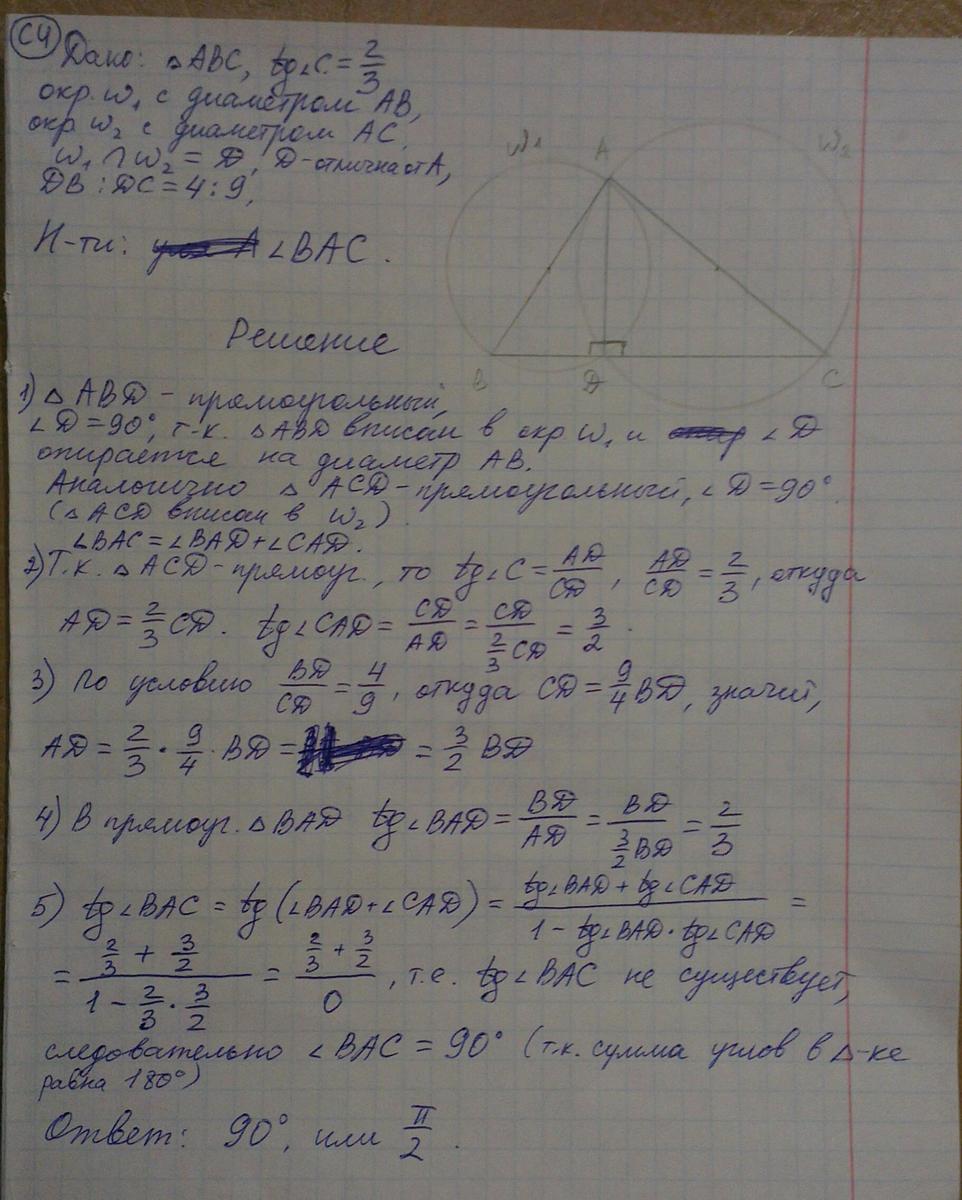 С4
Дано: △ABC, tg∠C = 2/3
окр. w₁ с диаметром AB,
окр. w₂ с диаметром AC,
w₁ ∩ w₂ = D, D - отлична от A,
DB : DC = 4 : 9,
Н-ти: ∠BAC.
w₁ A w₂
B D C
Решение
1) △ABD - прямоугольный,
∠D = 90°, т.к. △ABD вписан в окр w₁ и ∠D
опирается на диаметр AB.
Аналогично △ACD - прямоугольный, ∠D = 90°.
(△ACD вписан в w₂)
∠BAC = ∠BAD + ∠CAD.
2) Т.к. △ACD - прямоуг., то tg∠C = AD/CD, AD/CD = 2/3, откуда
AD = 2/3 CD. tg∠CAD = CD/AD = CD/(2/3 CD) = 3/2.
3) По условию BD/CD = 4/9, откуда CD = 9/4 BD, значит,
AD = 2/3 · 9/4 · BD = = 3/2 BD
4) В прямоуг. △BAD tg∠BAD = BD/AD = BD/(3/2 BD) = 2/3
5) tg∠BAC = tg(∠BAD + ∠CAD) = (tg∠BAD + tg∠CAD)/(1 - tg∠BAD · tg∠CAD) =
= (2/3 + 3/2)/(1 - 2/3 · 3/2) = (2/3 + 3/2)/0, т.е. tg∠BAC не существует,
следовательно ∠BAC = 90° (т.к. сумма углов в △-ке
равна 180°)
Ответ: 90°, или π/2.